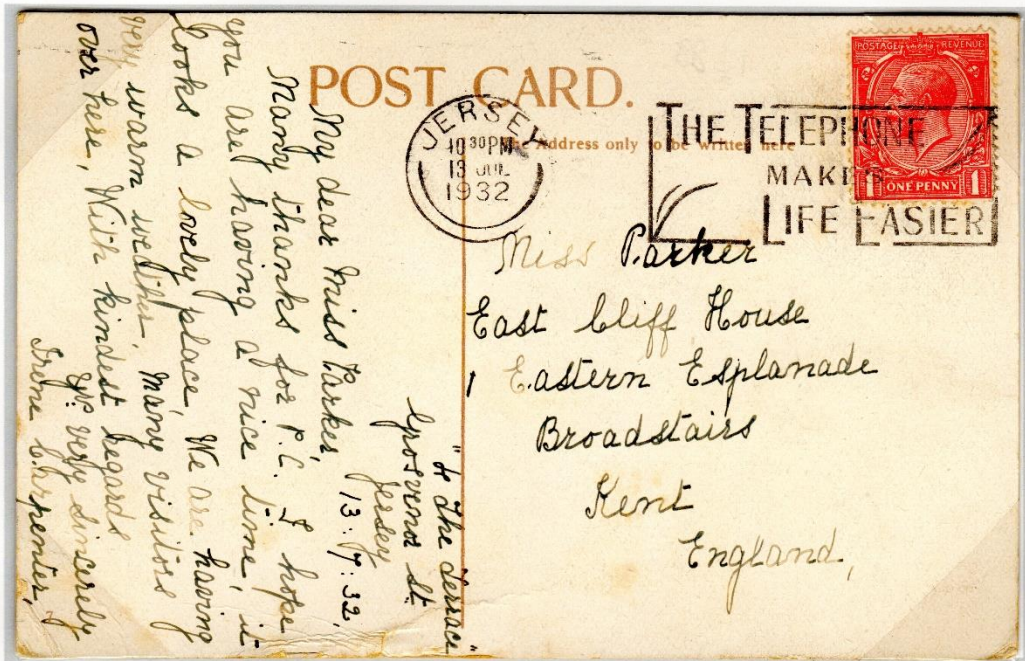 POST CARD.
The Address only to be written here
JERSEY
10 30 PM
13 JUL
1932
THE TELEPHONE
MAKES
LIFE EASIER
POSTAGE REVENUE
1 ONE PENNY 1
Miss Parker
East Cliff House
Eastern Esplanade
Broadstairs
Kent
England,
"4 The Terrace"
Grosvenor St.
Jersey
13.7.32.
My dear Miss Parker,
Many thanks for P.C. I hope
you are having a nice time, it
looks a lovely place, We are having
very warm weather, many visitors
over here, With kindest regards
Yrs. very sincerely
Irene Carpenter,